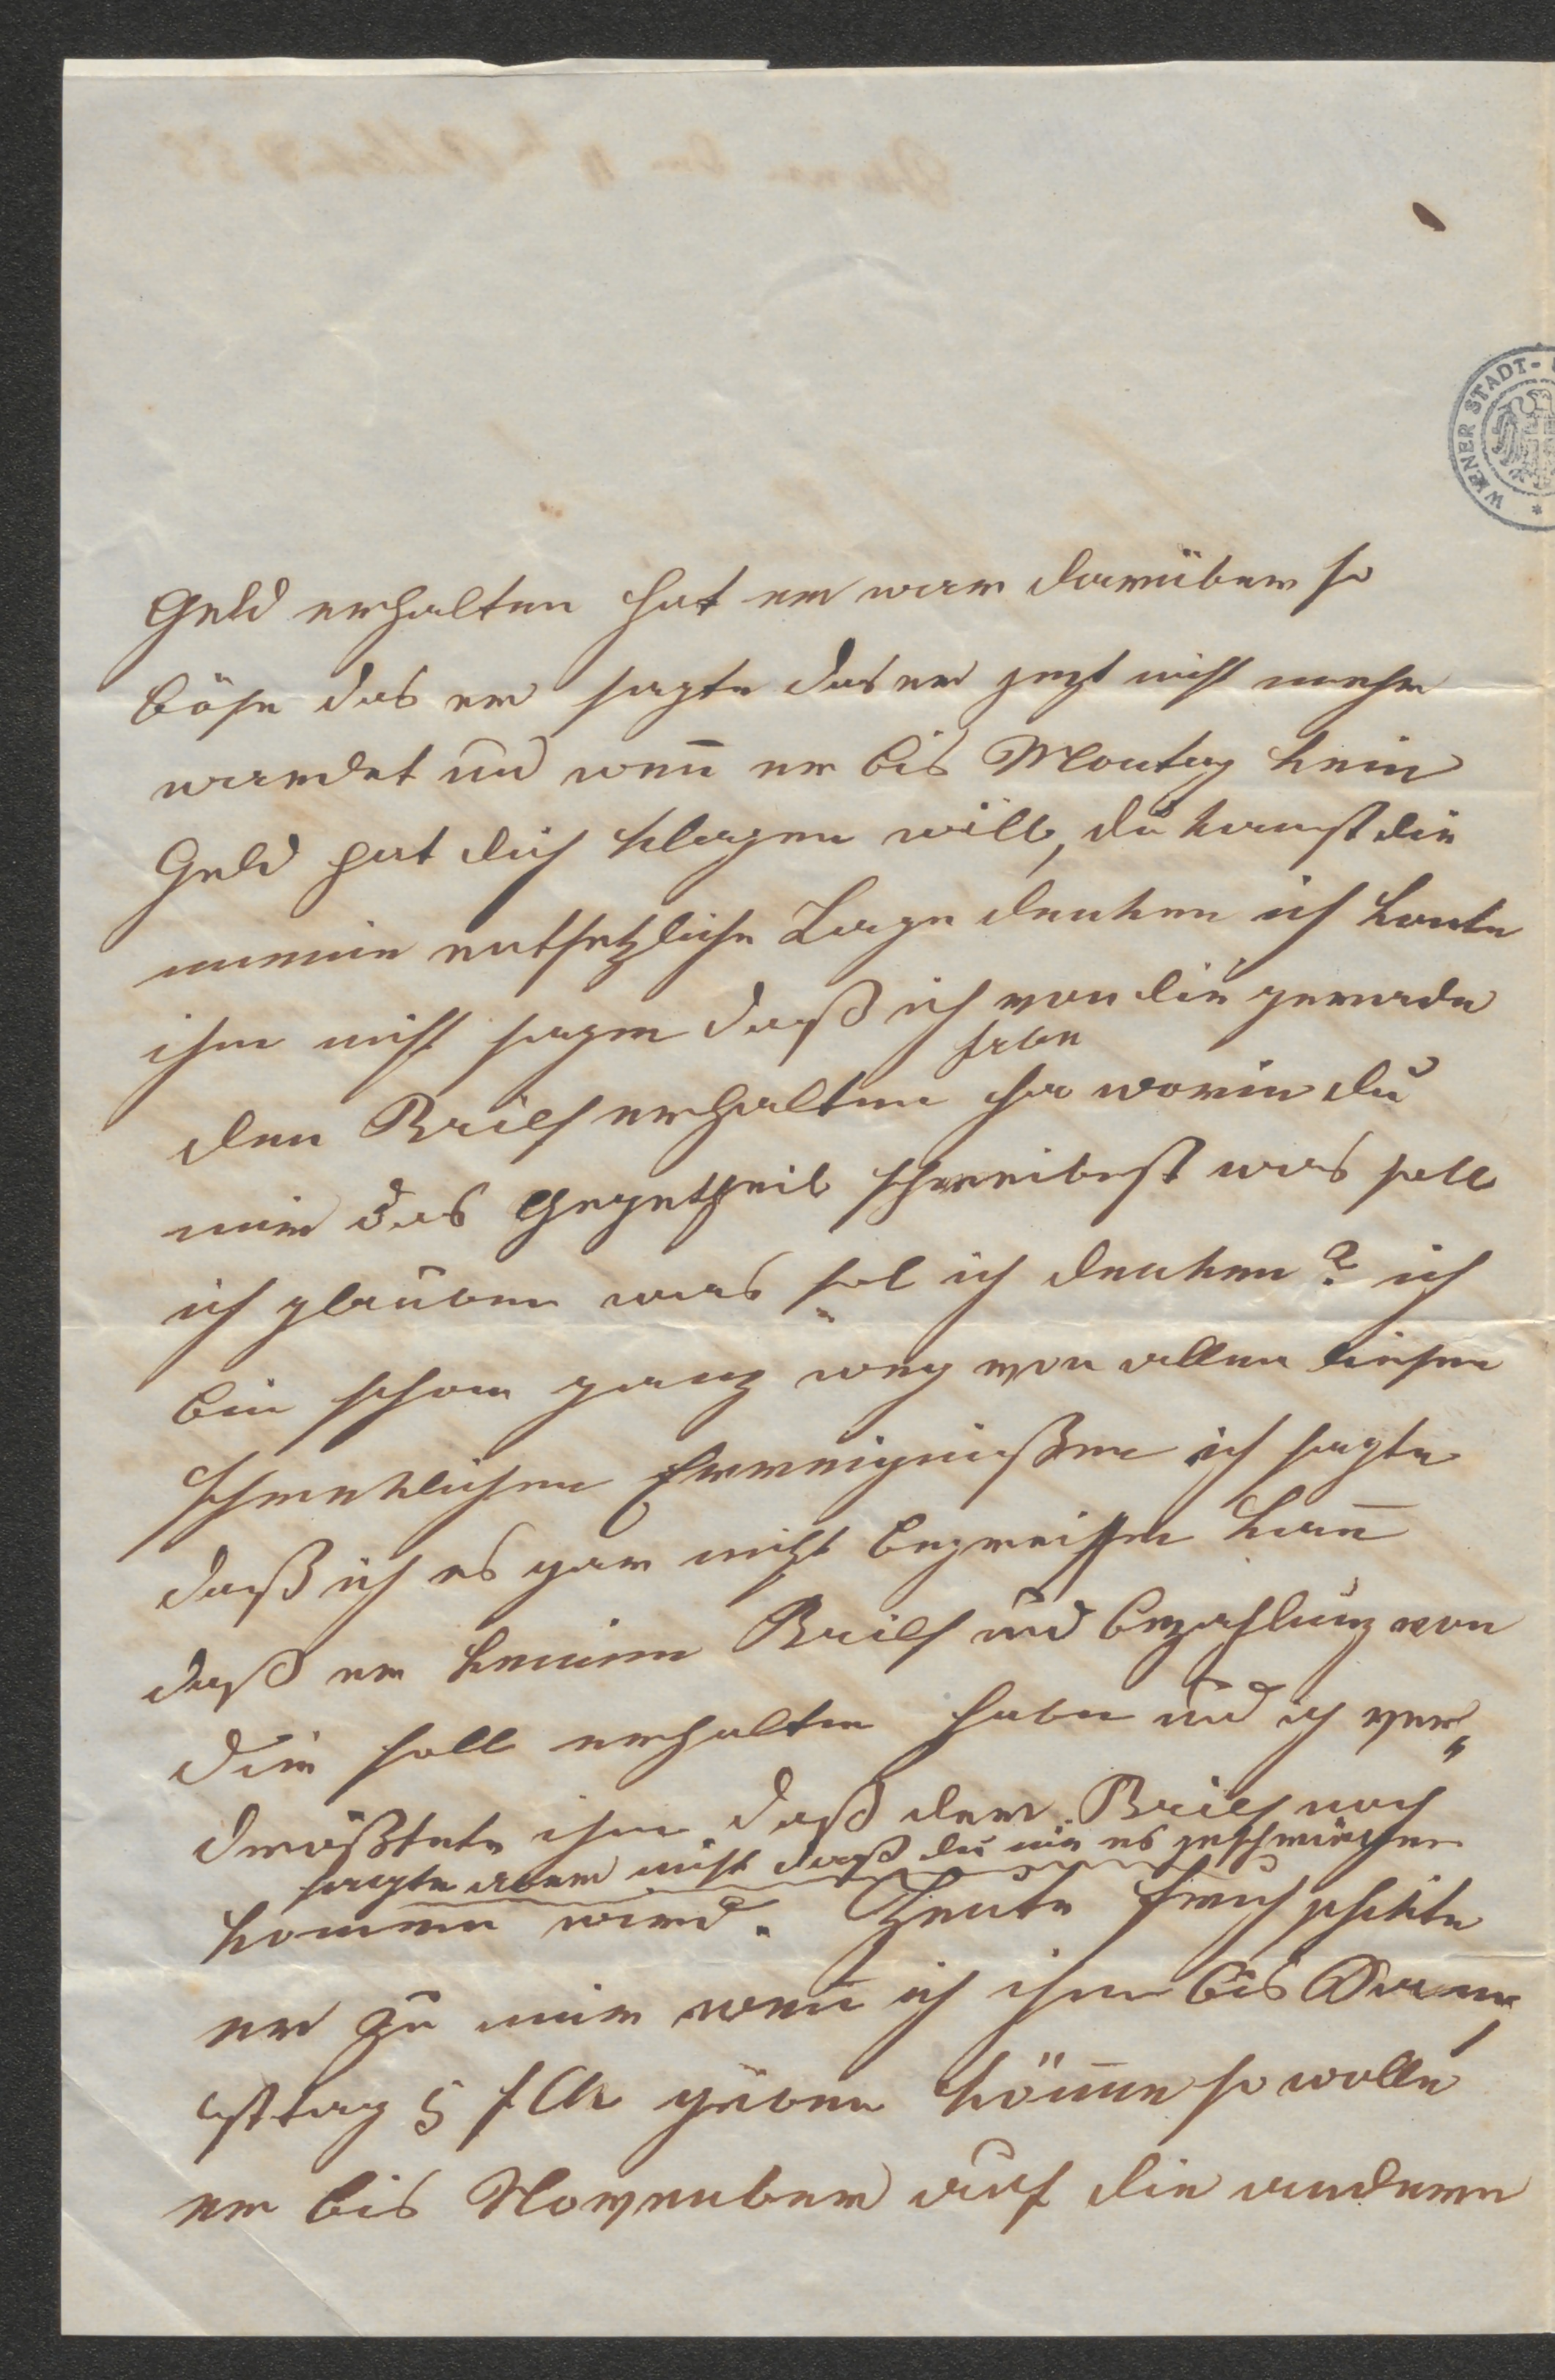 WIENER STADT-
Geld erhalten hat er war darüber so
böse das er sagte das er jezt nicht mehr
wardet und wen̄ er bis Montag kein
Geld hat dich klagen will, du kanst dir
meine entsetzliche Lage denken ich konte
ihm nicht sagen daß ich von dir gerade
habe
den Brief erhalten ha worin du
mir das Gegetheil schreibest was soll
ich glauben was sol ich denken? ich
bin schon ganz weg von allen diesen
schreklichen Ereeignißen ich sagte
daß ich es gar nicht begreiffen kan̄
daß er keinen Brief und bezahlung von
dir soll erhalten haben und ich ver„
drößtete ihm daß der Brief noch
sagte aber nicht daß du mir es geschrieben
kommen wird. Heute fruh schikte
er zu mir wen̄ ich ihm bis Don̄er„
sttag 5 f CM geben kön̄ne so wolle
er bis November auf die andern